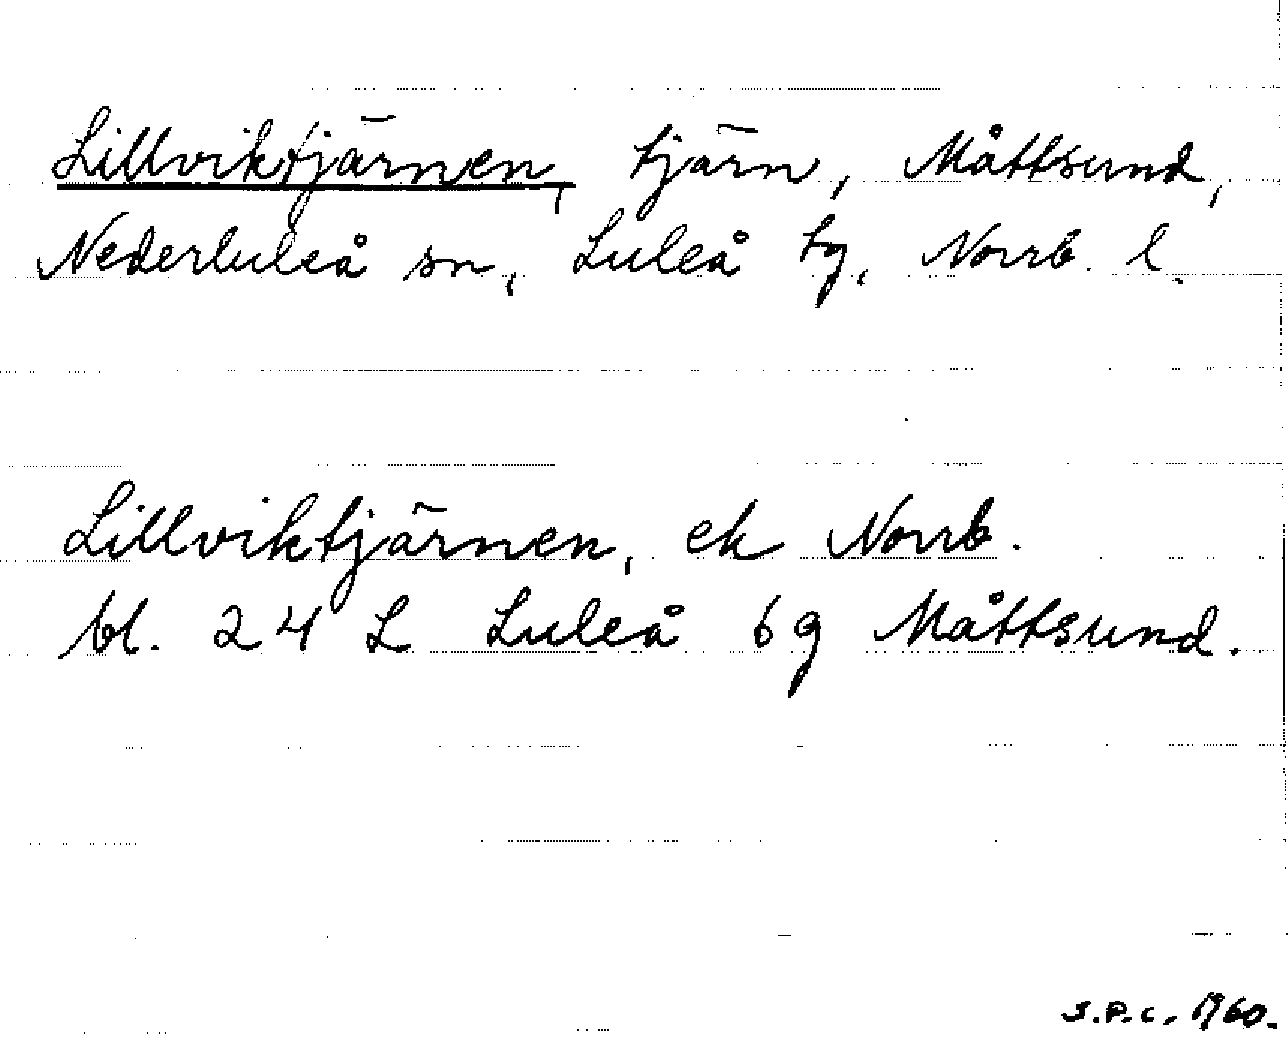 Lillviktjärnen, tjärn, Måttsund,
Nederluleå sn, Luleå tg, Norrb. l.
Lillviktjärnen, ek Norrb.
bl. 24 L Luleå 6g Måttsund.
S.P.C. 1960.